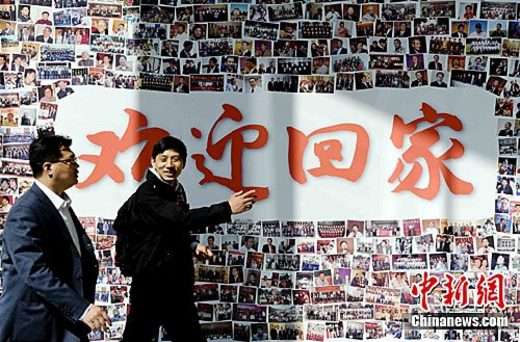 欢迎回家
中新网
Chinanews.com